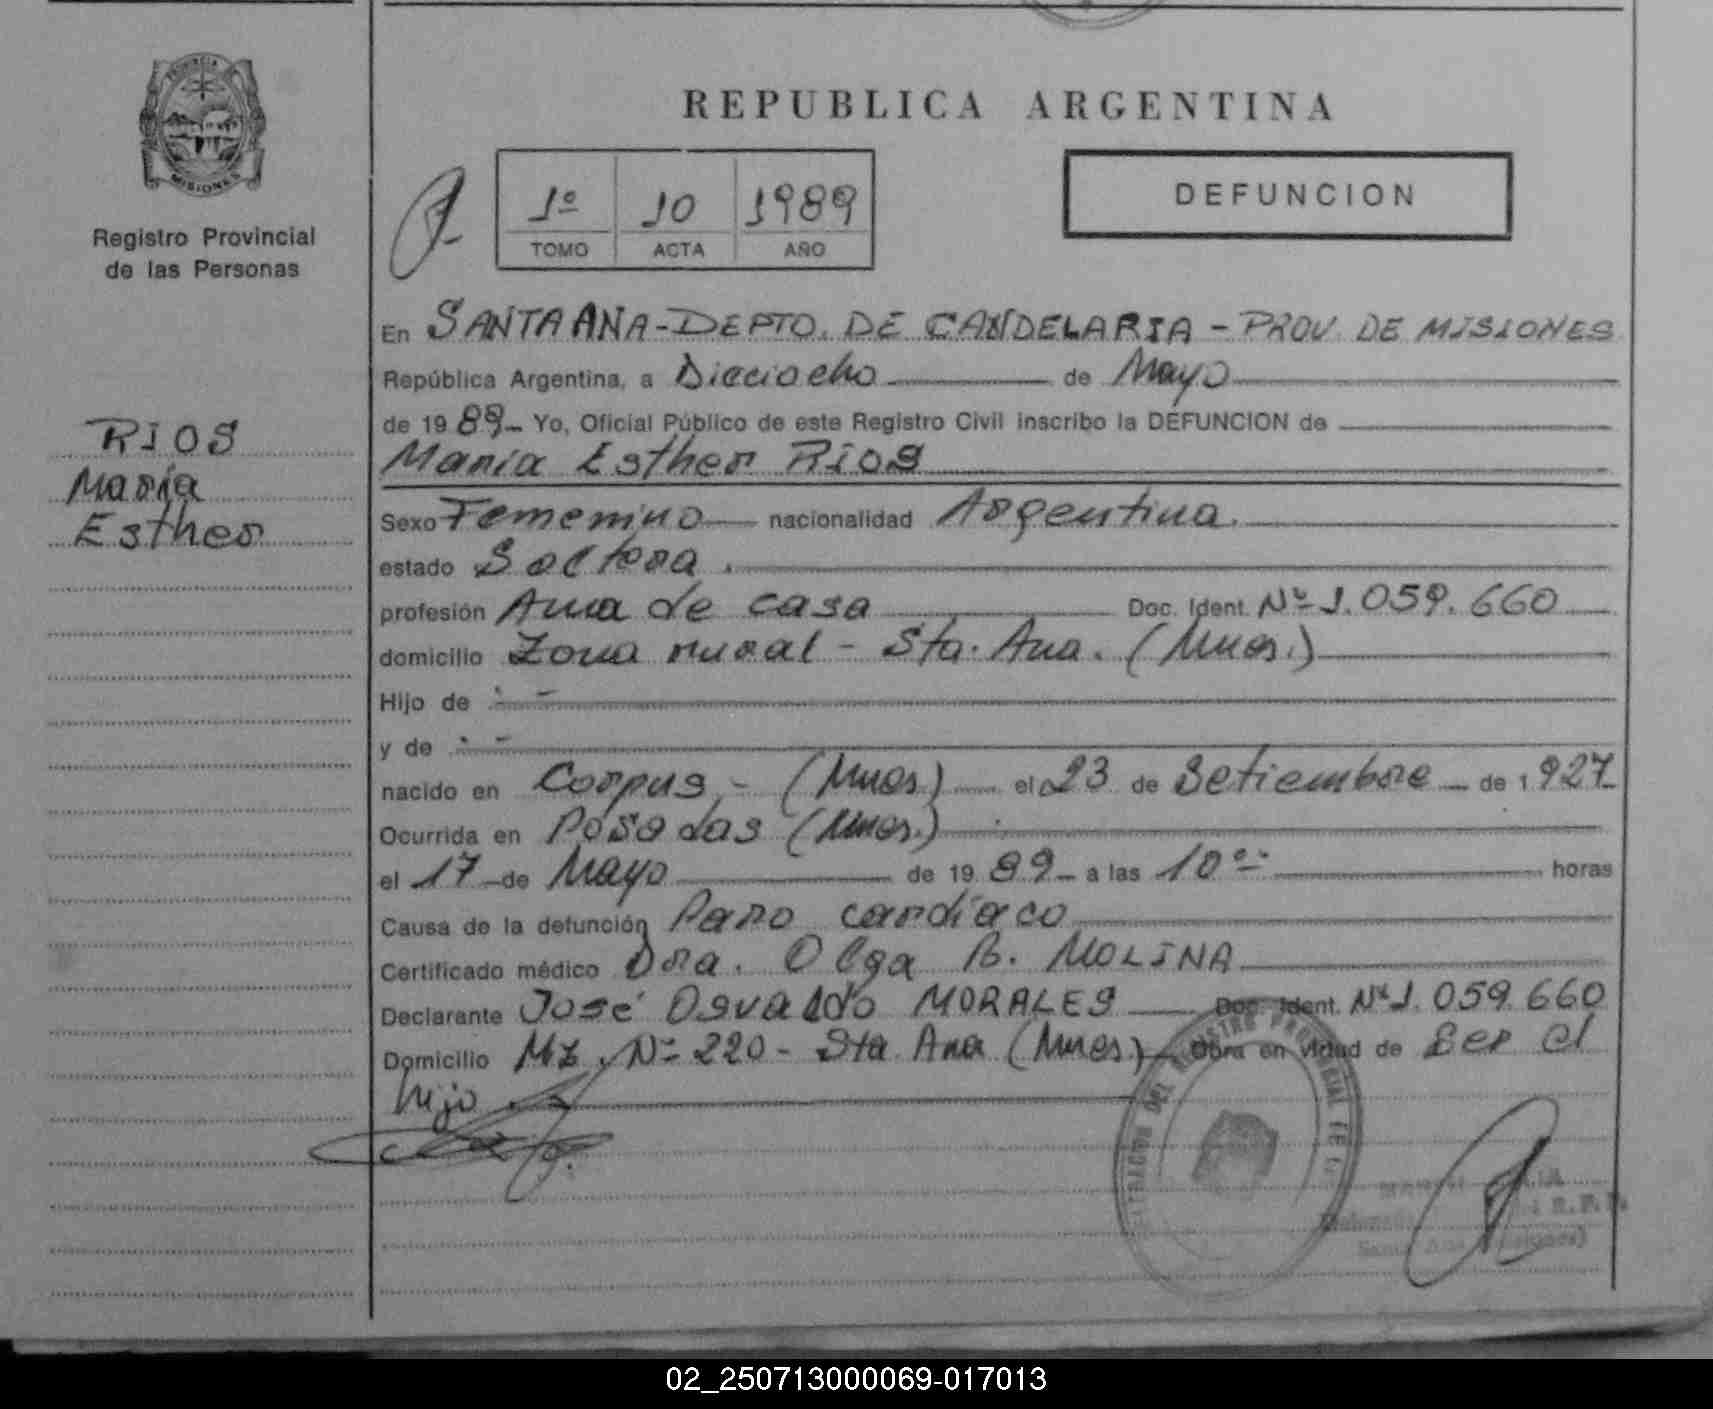 REPUBLICA ARGENTINA
PROVINCIA
MISIONES
Registro Provincial
de las Personas
1º 10 1989
TOMO ACTA AÑO
DEFUNCION
RIOS
María
Esther
En SANTA ANA-DEPTO. DE CANDELARIA - PROV. DE MISIONES
República Argentina, a Dieciocho de Mayo
de 1989- Yo, Oficial Público de este Registro Civil inscribo la DEFUNCION de
María Esther RIOS
Sexo Femenino nacionalidad Argentina.
estado Soltera.
profesión Ama de casa Doc. Ident. Nº 1.059.660
domicilio Zona rural - Sta. Ana. (Mnes.)
Hijo de : -
y de : -
nacido en Corpus - (Mnes) el 23 de Setiembre de 1927
Ocurrida en Posadas (Mnes.)
el 17 de Mayo de 1989 a las 10 horas
Causa de la defunción Paro cardíaco
Certificado médico Dra. Olga B. MOLINA
Declarante José Osvaldo MORALES Doc. Ident. Nº 1.059.660
Domicilio Mz. Nº 220 - Sta Ana (Mnes) Obra en vidud de Ser el
hijo
DEL REGISTRO PROVINCIAL DE
Santa Ana (Misiones)
02_250713000069-017013